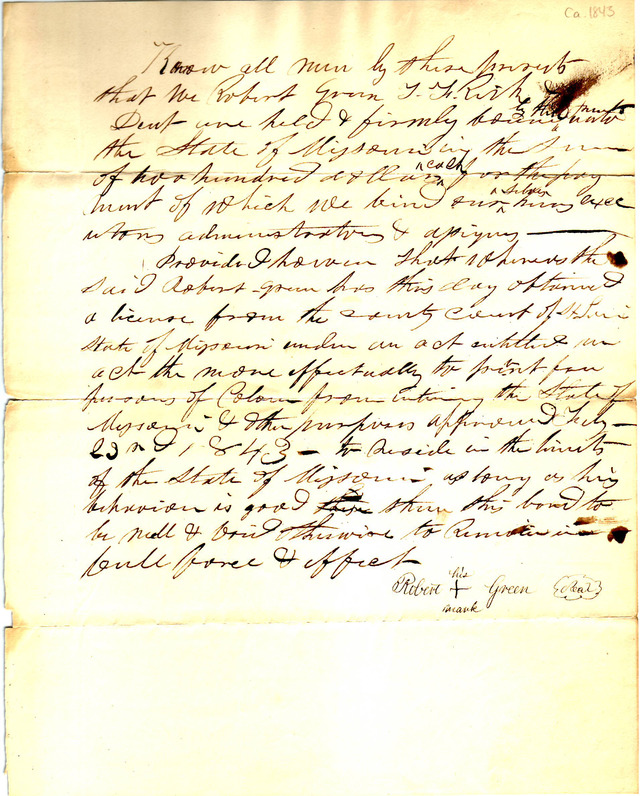 Ca. 1843
Know all men by these presents
that We Robert Green T. T. Kirk &
Dent are held & firmly bound unto
by these presents
the State of Missouri in the sum
of two hundred dollars for the pay
each
ment of which we bind our heirs exec
utors administrators & assigns
Provided however that whereas the
Said Robert Green has this day obtained
a license from the county court of St. Louis
State of Missouri under an act entitled an
act the more effectually to prevent free
persons of Colour from entering the State of
Missouri & other purposes approved Feby
23rd 1843 - to reside in the limits
of the State of Missouri as long as his
behavior is good then this bond to
be null & void otherwise to remain in
full force & effect
Robert his + mark Green Seal